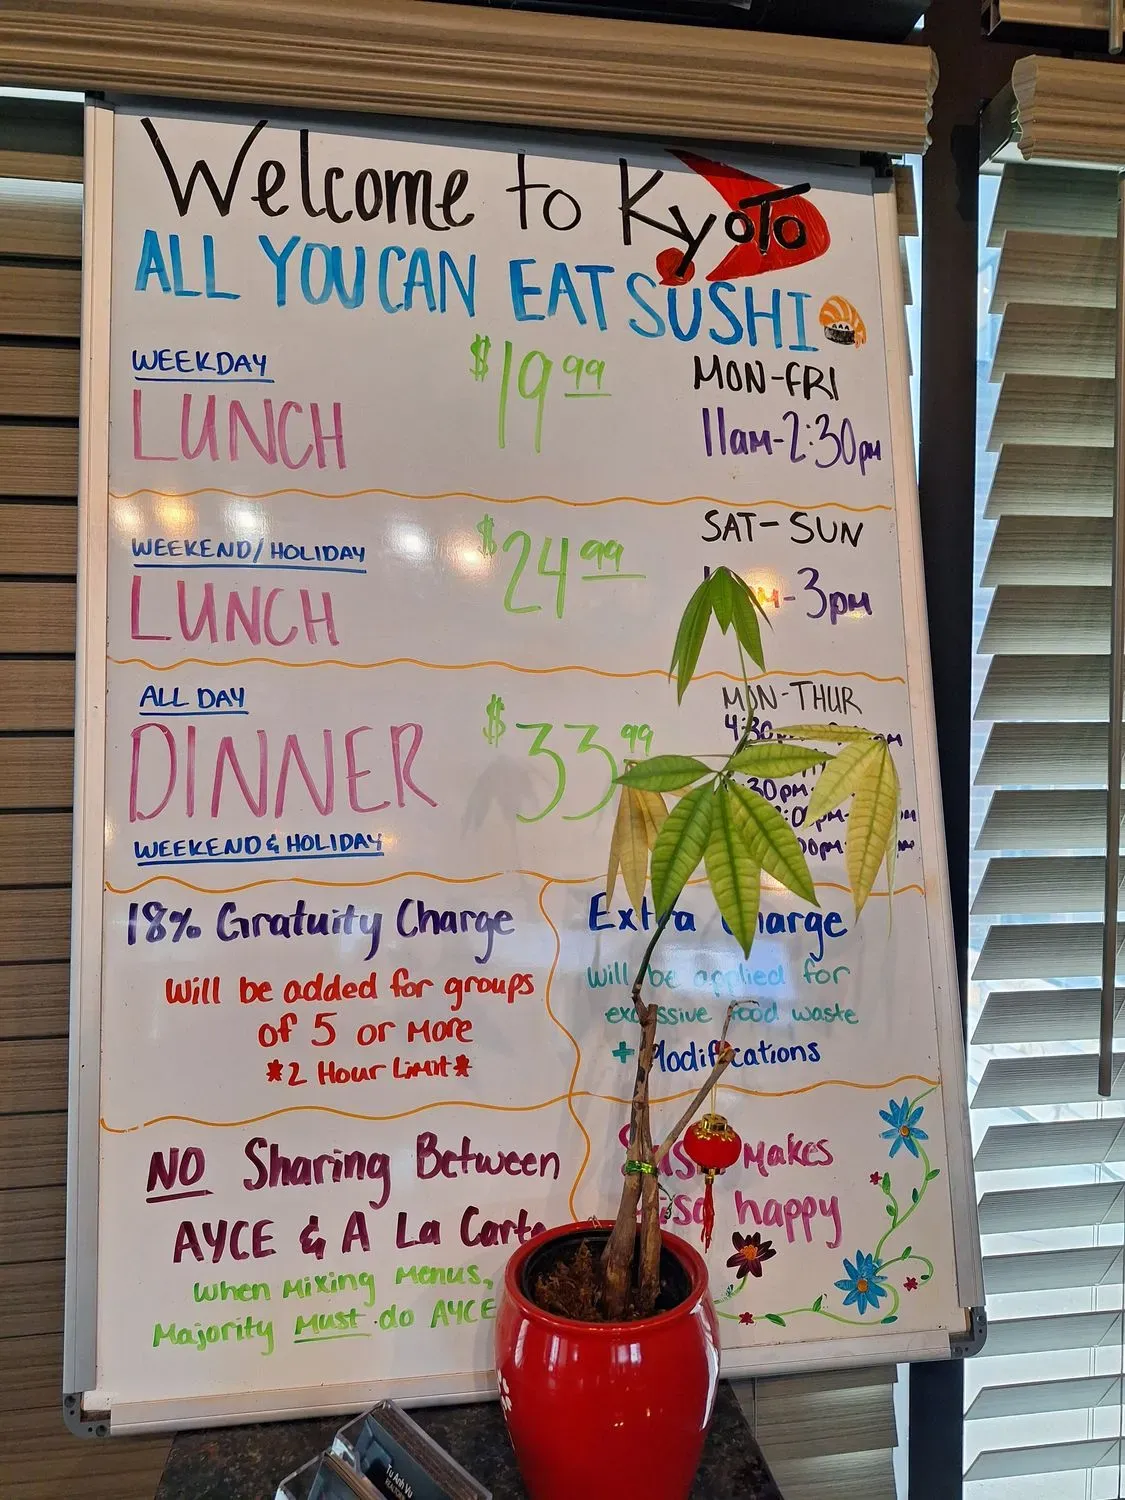 Welcome to Kyoto
ALL YOU CAN EAT SUSHI
WEEKDAY
LUNCH
$19.99
MON-FRI
11am-2:30pm
WEEKEND/HOLIDAY
LUNCH
$24.99
SAT-SUN
-3pm
ALL DAY
DINNER
WEEKEND & HOLIDAY
$33.99
MON-THUR
4:30
:30pm-
18% Gratuity Charge
Will be added for groups
of 5 or more
*2 Hour Limit*
Extra Charge
will be applied for
excessive food waste
+ Modifications
NO Sharing Between
AYCE & A La Carte
When mixing menus,
Majority must do AYCE
makes
happy
Tu Anh Vu
REALTOR